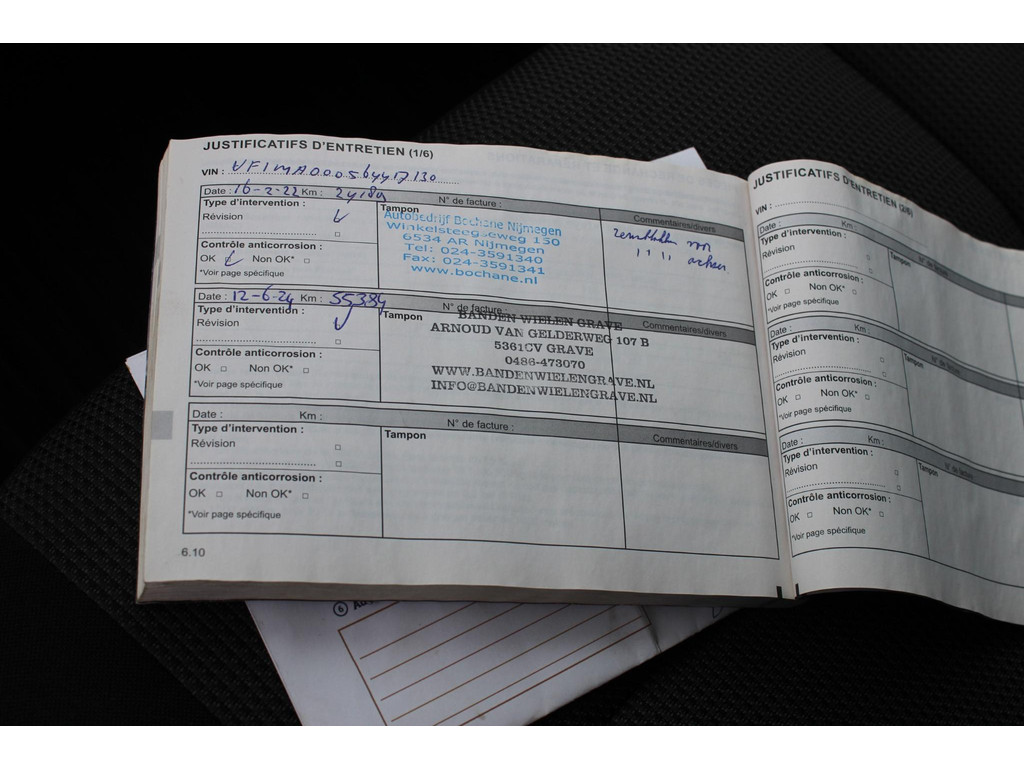 JUSTIFICATIFS D'ENTRETIEN (1/6)
VIN : VF1MA000564417130
Date : 16-2-22 Km : 24189
N° de facture :
Commentaires/divers
Type d'intervention :
Révision
Contrôle anticorrosion :
OK Non OK*
*Voir page spécifique
Tampon
Autobedrijf Bochane Nijmegen
Winkelsteegseweg 150
6534 AR Nijmegen
Tel: 024-3591340
Fax: 024-3591341
www.bochane.nl
van
Date : 12-6-24 Km : 55384
N° de facture :
Commentaires/divers
Type d'intervention :
Révision
Contrôle anticorrosion :
OK Non OK*
*Voir page spécifique
Tampon
BANDEN WIELEN GRAVE
ARNOUD VAN GELDERWEG 107 B
5361CV GRAVE
0486-473070
WWW.BANDENWIELENGRAVE.NL
INFO@BANDENWIELENGRAVE.NL
Date : Km :
N° de facture :
Commentaires/divers
Type d'intervention :
Révision
Contrôle anticorrosion :
OK Non OK*
*Voir page spécifique
Tampon
6.10
JUSTIFICATIFS D'ENTRETIEN (2/6)
VIN :
Date : Km :
Type d'intervention :
Révision
Contrôle anticorrosion :
OK Non OK*
*Voir page spécifique
Tampon
N° de facture
Date : Km :
Type d'intervention :
Révision
Contrôle anticorrosion :
OK Non OK*
*Voir page spécifique
Tampon
N° de facture
Date : Km :
Type d'intervention :
Révision
Contrôle anticorrosion :
OK Non OK*
*Voir page spécifique
Tampon
N° de facture
6